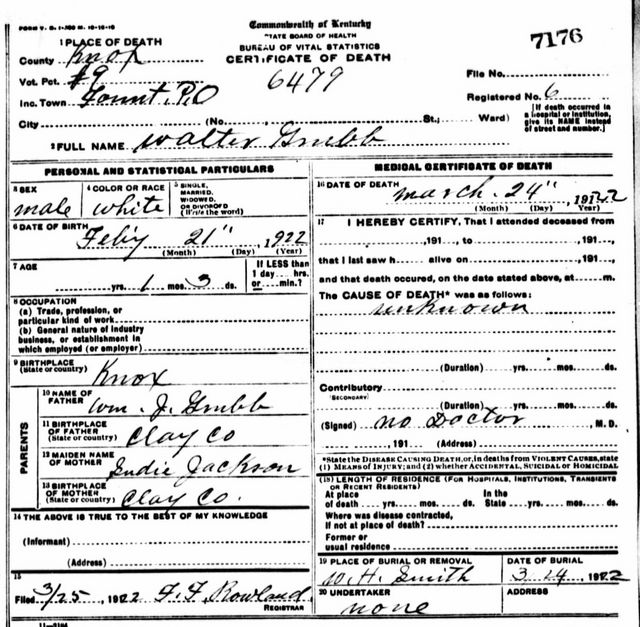 FORM V. S. 1-
Commonwealth of Kentucky
STATE BOARD OF HEALTH
BUREAU OF VITAL STATISTICS
CERTIFICATE OF DEATH
7176
6479
1 PLACE OF DEATH
County Knox
Vot. Pct. #9
Inc. Town Fount, P.O
City (No. St.; Ward)
File No.
Registered No. 6
[If death occurred in a hospital or institution, give its NAME instead of street and number.]
2 FULL NAME Walter Grubb
PERSONAL AND STATISTICAL PARTICULARS
3 SEX male
4 COLOR OR RACE white
5 SINGLE, MARRIED, WIDOWED, OR DIVORCED (Write the word)
6 DATE OF BIRTH
Feby 21" 1922
(Month) (Day) (Year)
7 AGE
yrs. 1 mos. 3 ds.
If LESS than 1 day hrs. or min.?
8 OCCUPATION
(a) Trade, profession, or
particular kind of work
(b) General nature of industry
business, or establishment in
which employed (or employer)
9 BIRTHPLACE
(State or country) Knox
PARENTS
10 NAME OF FATHER Wm. J. Grubb
11 BIRTHPLACE OF FATHER (State or country) Clay Co
12 MAIDEN NAME OF MOTHER Sudie Jackson
13 BIRTHPLACE OF MOTHER (State or country) Clay Co.
14 THE ABOVE IS TRUE TO THE BEST OF MY KNOWLEDGE
(Informant)
(Address)
15
Filed 3/25 1922 F. F. Rowland
REGISTRAR
MEDICAL CERTIFICATE OF DEATH
16 DATE OF DEATH
March 24" 1922
(Month) (Day) (Year)
17 I HEREBY CERTIFY, That I attended deceased from
,191 , to ,191 ,
that I last saw h alive on ,191 ,
and that death occured, on the date stated above, at m.
The CAUSE OF DEATH* was as follows:
unknown
(Duration) yrs. mos. ds.
Contributory
(SECONDARY)
(Duration) yrs. mos. ds.
(Signed) no Doctor M. D.
, 191 (Address)
*State the DISEASE CAUSING DEATH, or, in deaths from VIOLENT CAUSES, state
(1) MEANS OF INJURY; and (2) whether ACCIDENTAL, SUICIDAL or HOMICIDAL
(18) LENGTH OF RESIDENCE (FOR HOSPITALS, INSTITUTIONS, TRANSIENTS
OR RECENT RESIDENTS)
At place of death yrs. mos. ds. In the State yrs. mos. ds.
Where was disease contracted,
If not at place of death?
Former or
usual residence
19 PLACE OF BURIAL OR REMOVAL
W. H. Smith
DATE OF BURIAL
3 24 1922
20 UNDERTAKER
none
ADDRESS
11-3184